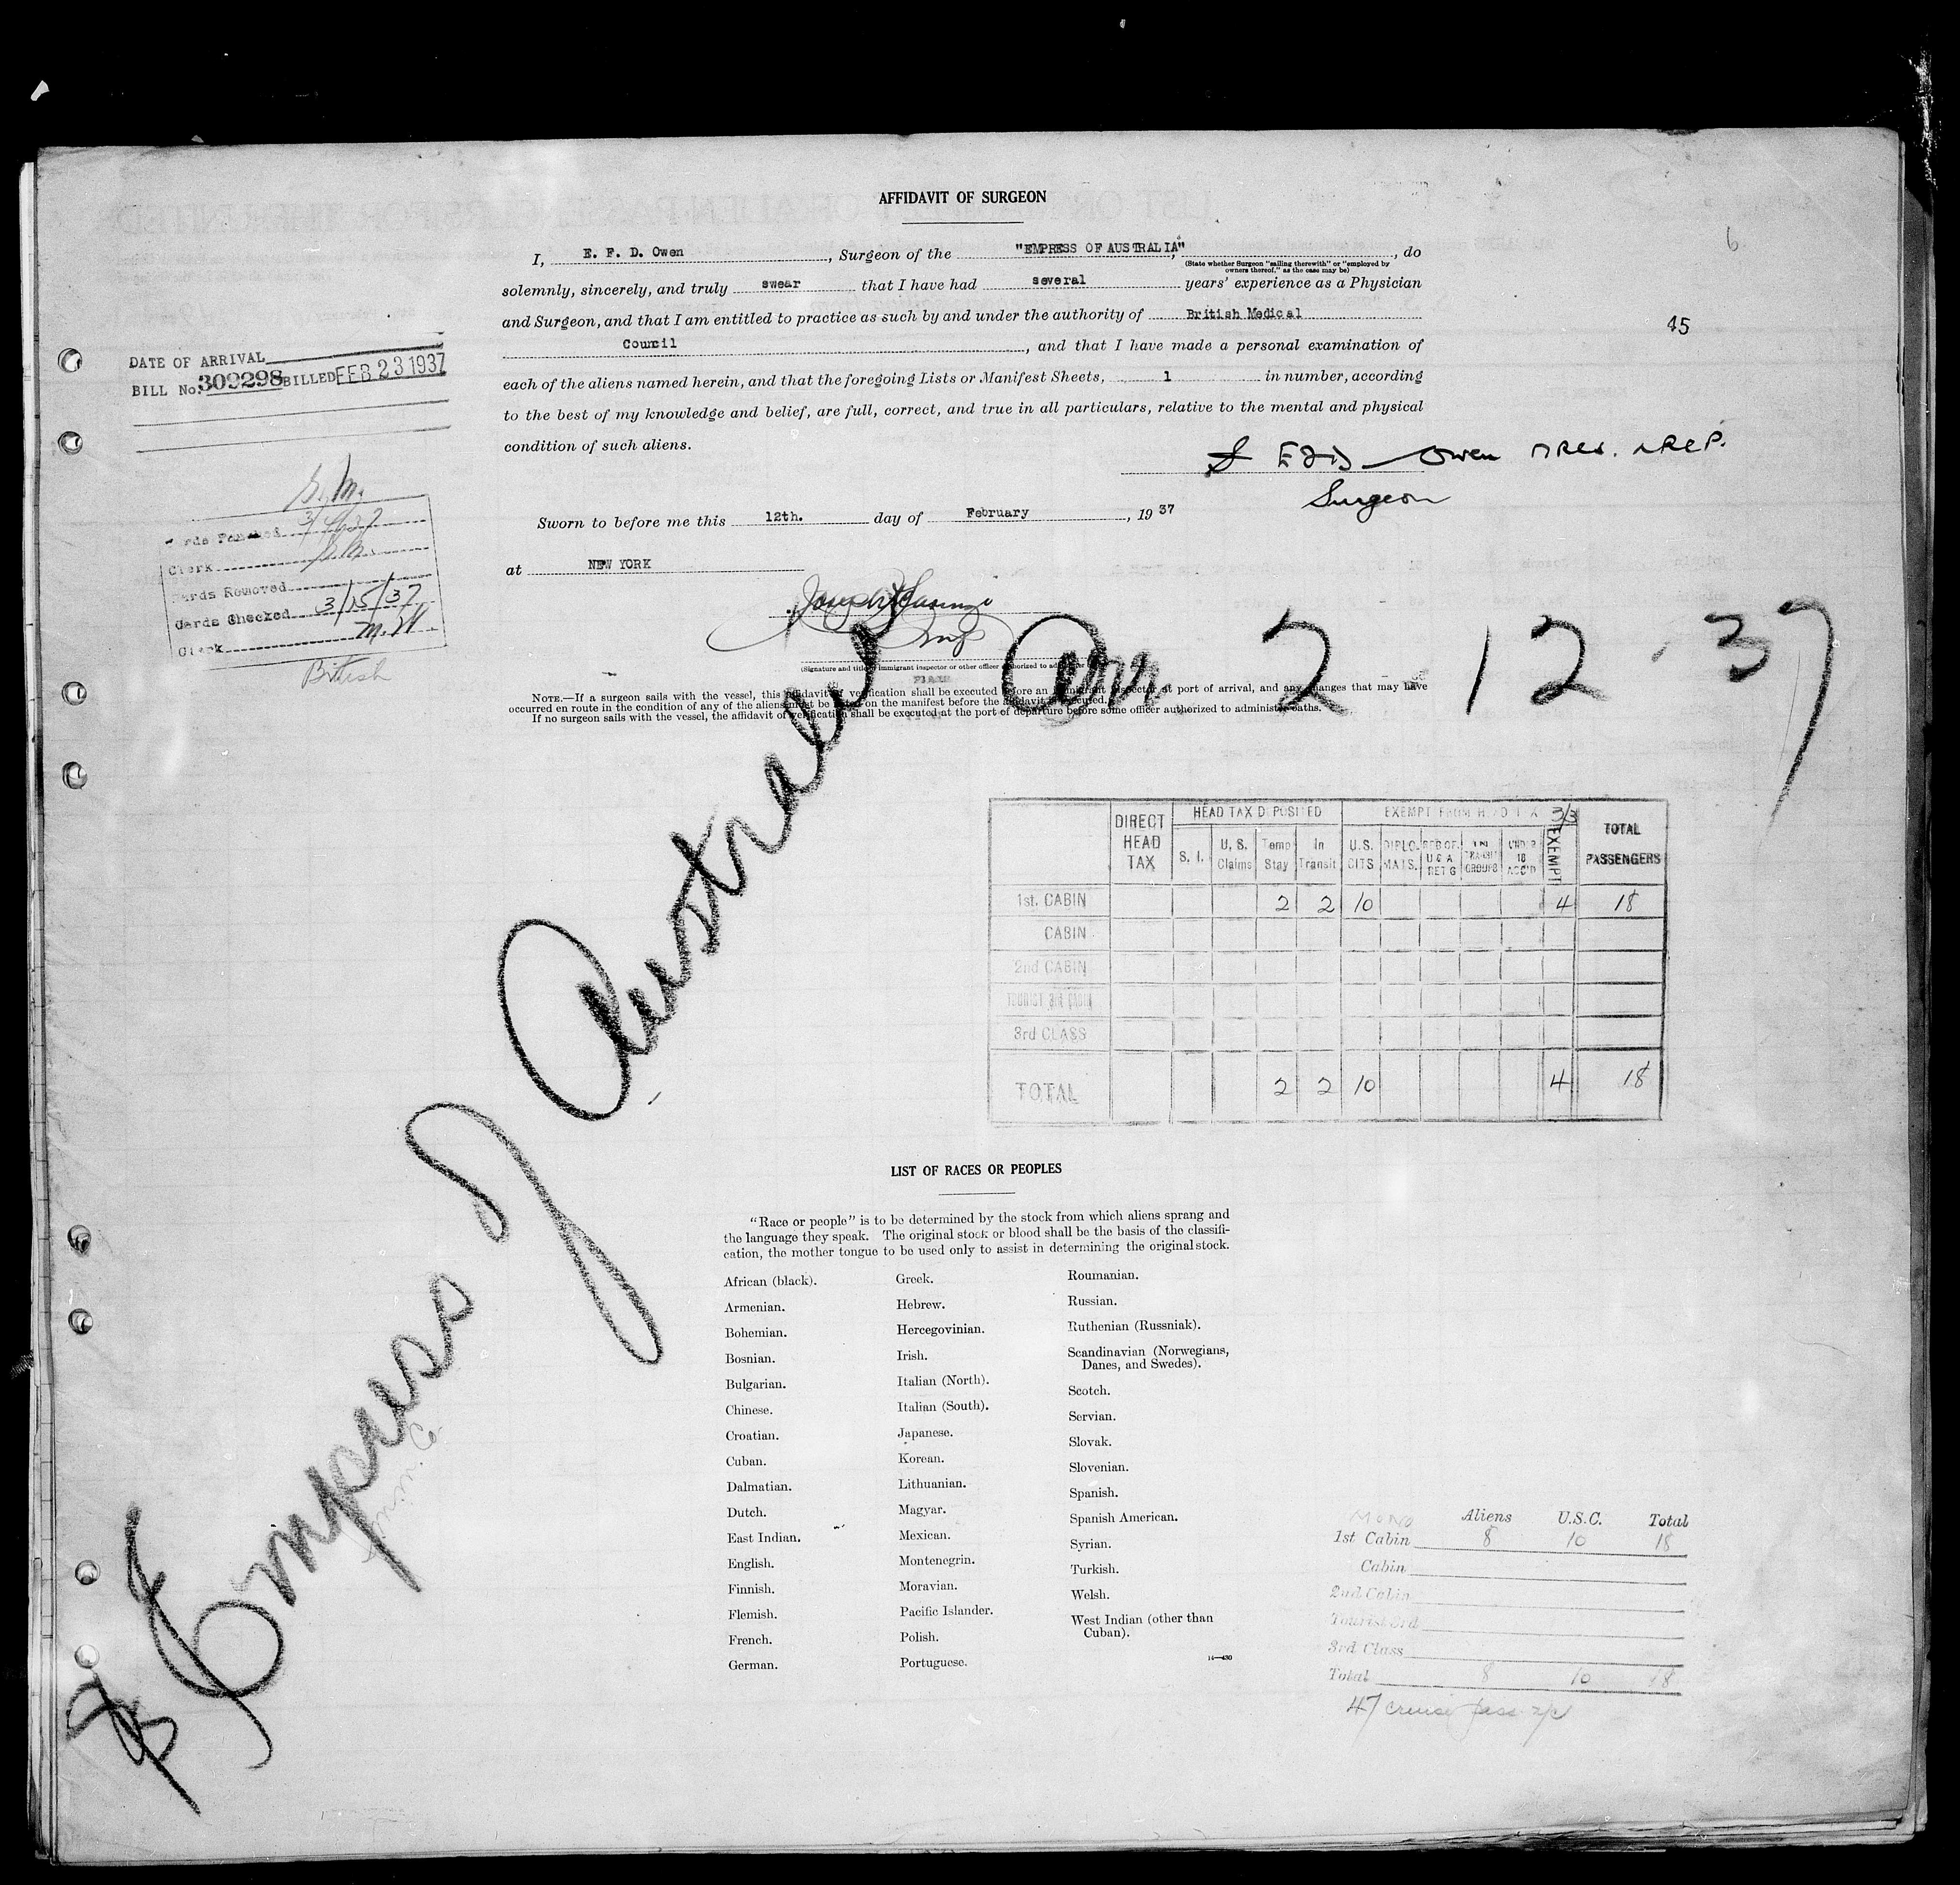 AFFIDAVIT OF SURGEON
6
I, E. F. D. Owen, Surgeon of the "EMPRESS OF AUSTRALIA", do
(State whether Surgeon "sailing therewith" or "employed by
owners thereof," as the case may be)
solemnly, sincerely, and truly swear that I have had several years' experience as a Physician
and Surgeon, and that I am entitled to practice as such by and under the authority of British Medical
Council, and that I have made a personal examination of
each of the aliens named herein, and that the foregoing Lists or Manifest Sheets, 1 in number, according
to the best of my knowledge and belief, are full, correct, and true in all particulars, relative to the mental and physical
condition of such aliens.
45
DATE OF ARRIVAL
BILL No. 309298 BILLED FEB 23 1937
Owen
Surgeon
Sworn to before me this 12th. day of February, 1937
at NEW YORK
Clerk
Cards Removed
Cards Checked 3/15/37
Clerk M.H.
British
(Signature and title of immigrant inspector or other officer authorized to administer oaths)
NOTE.—If a surgeon sails with the vessel, this affidavit of verification shall be executed before an immigrant inspector at port of arrival, and any changes that may have
occurred en route in the condition of any of the aliens must be noted on the manifest before the affidavit is executed.
If no surgeon sails with the vessel, the affidavit of verification shall be executed at the port of departure before some officer authorized to administer oaths.
Arr. 2 - 12 - 37
Empress of Australia
DIRECT HEAD TAX HEAD TAX DEPOSITED EXEMPT FROM HEAD TAX 3/3 EXEMPT TOTAL PASSENGERS
S. I. U. S. Claims Temp Stay In Transit U.S. CITS DIPLO. MATS. RES OF U S A RET G IN TRANSIT GROUPS UNDER 16 ACC'D
1st. CABIN 2 2 10 4 18
CABIN
2nd CABIN
TOURIST 3rd CABIN
3rd CLASS
TOTAL 2 2 10 4 18
LIST OF RACES OR PEOPLES
"Race or people" is to be determined by the stock from which aliens sprang and
the language they speak. The original stock or blood shall be the basis of the classifi-
cation, the mother tongue to be used only to assist in determining the original stock.
African (black).
Armenian.
Bohemian.
Bosnian.
Bulgarian.
Chinese.
Croatian.
Cuban.
Dalmatian.
Dutch.
East Indian.
English.
Finnish.
Flemish.
French.
German.
Greek.
Hebrew.
Hercegovinian.
Irish.
Italian (North).
Italian (South).
Japanese.
Korean.
Lithuanian.
Magyar.
Mexican.
Montenegrin.
Moravian.
Pacific Islander.
Polish.
Portuguese.
Roumanian.
Russian.
Ruthenian (Russniak).
Scandinavian (Norwegians,
Danes, and Swedes).
Scotch.
Servian.
Slovak.
Slovenian.
Spanish.
Spanish American.
Syrian.
Turkish.
Welsh.
West Indian (other than
Cuban).
14—430
Mono Aliens U.S.C. Total
1st Cabin 8 10 18
Cabin
2nd Cabin
Tourist 3rd
3rd Class
Total 8 10 18
47 cruise pass